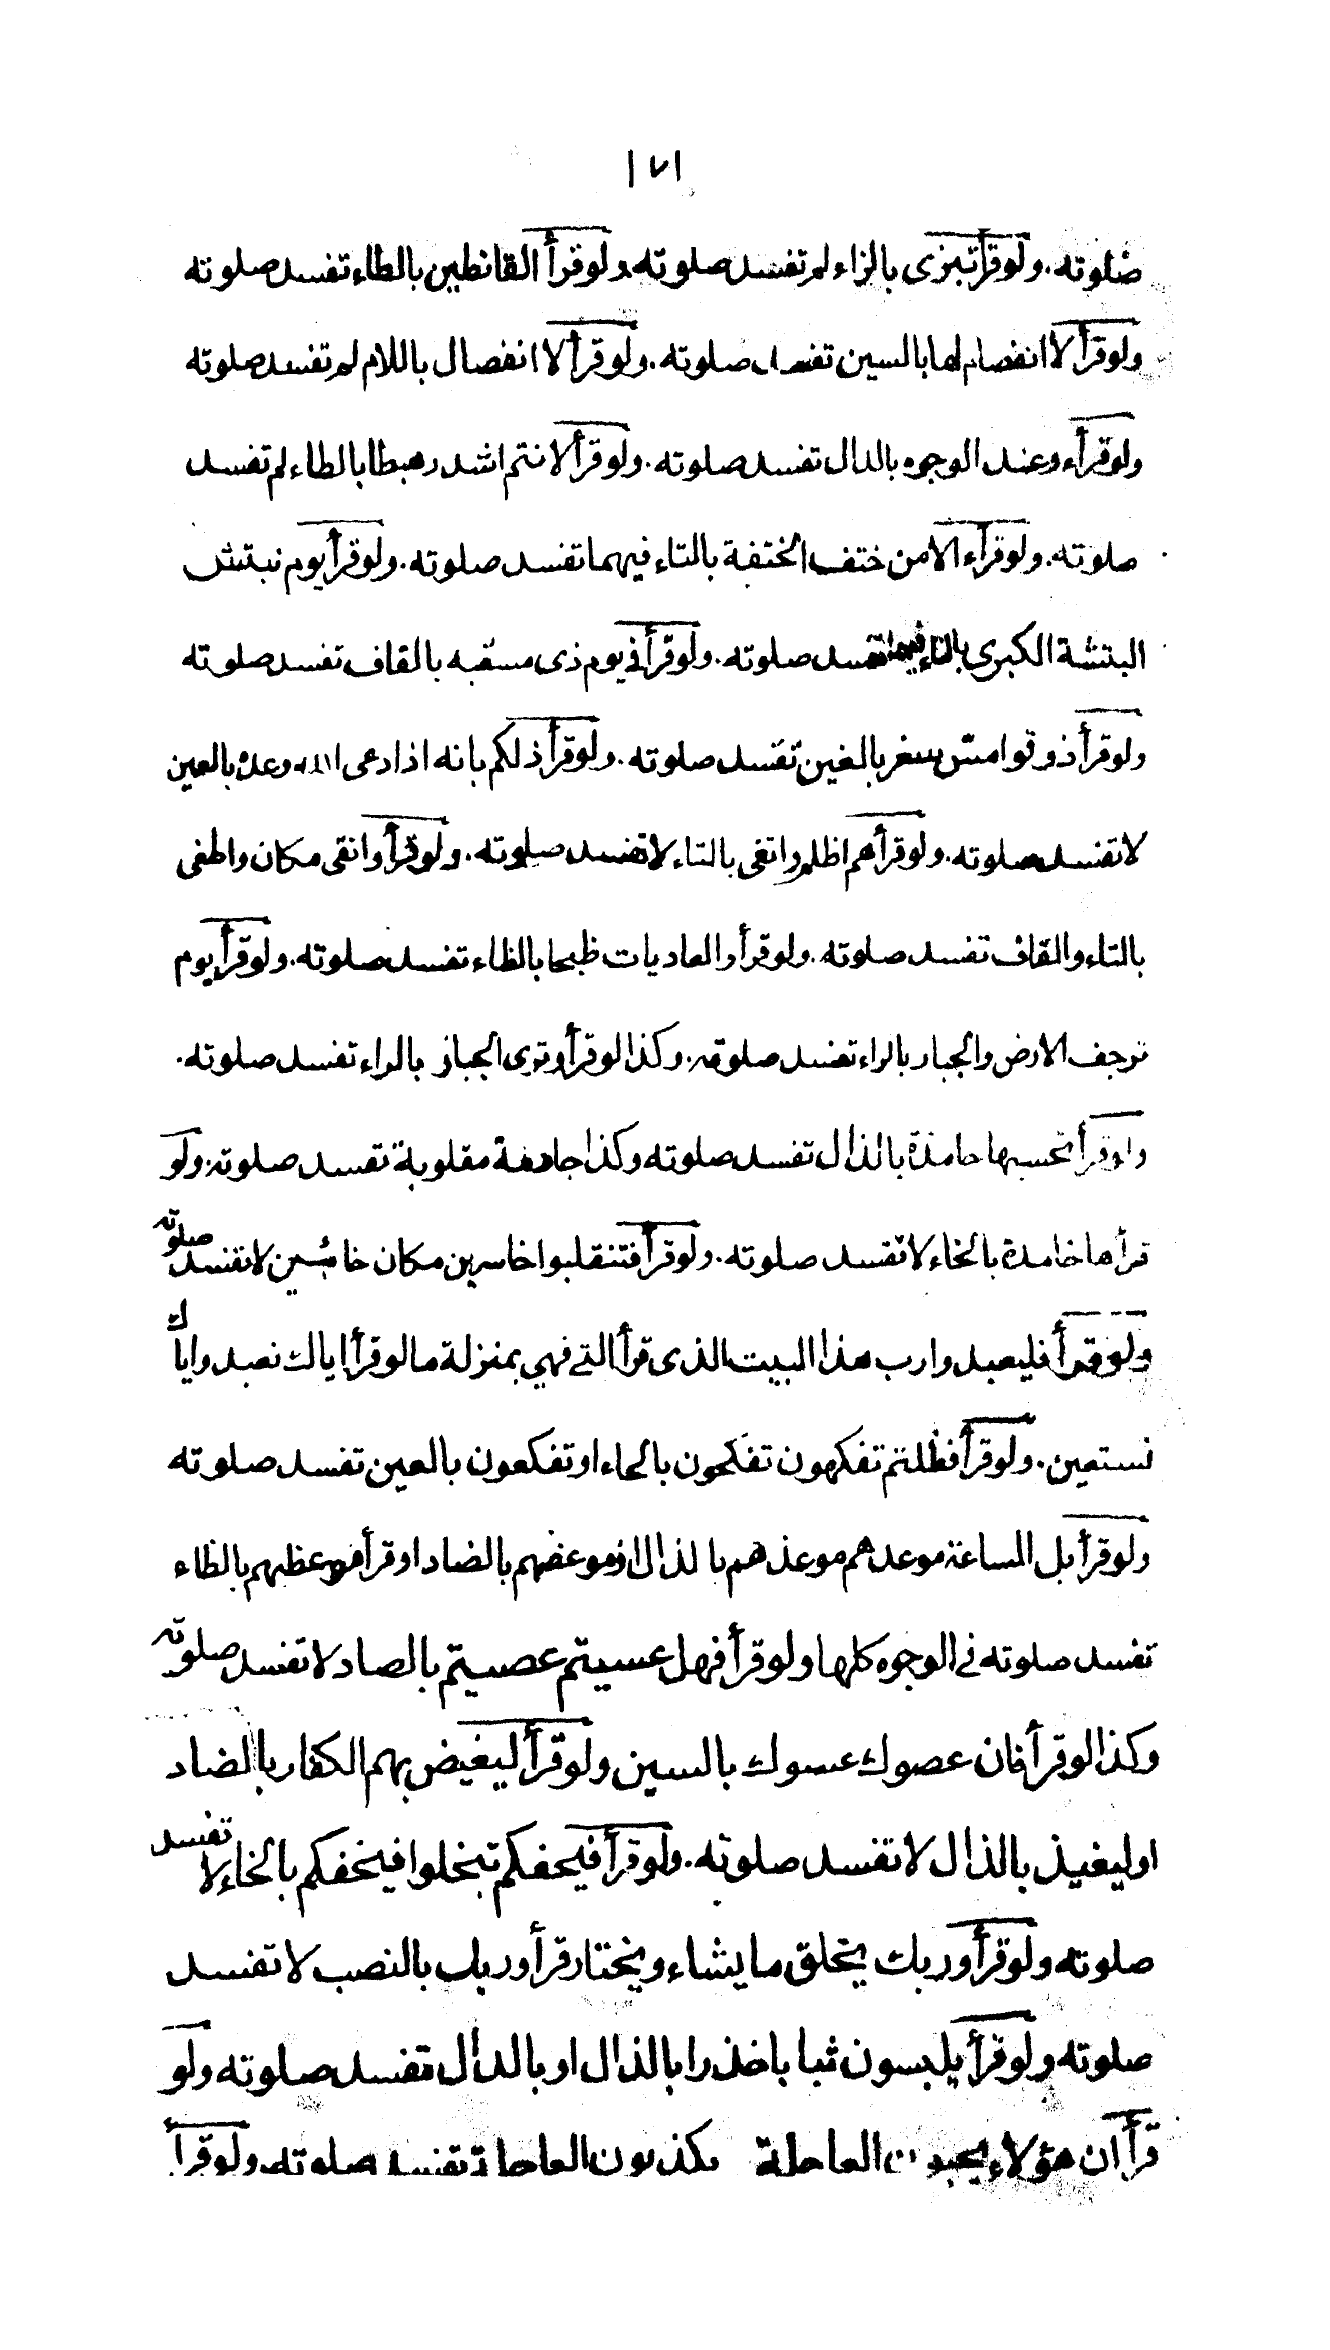 ١٧١
صلوته . ولوقرأ تبزى بالزاء لم تفسد صلوته ولوقرأ القانطين بالطاء تفسد صلوته
ولوقرأ لا انفصام لها بالسين تفسد صلوته . ولوقرأ لا انفصال باللام لم تفسد صلوته
ولوقرأء وعند الوجوه بالدال تفسد صلوته . ولوقرأ لانتم اشد رهبطا بالطاء لم تفسد
صلوته . ولوقرأء الامن ختف الختفة بالتاء فيهما تفسد صلوته . ولوقرأ يوم نبتش
البتشة الكبرى بالتاء فيهما تفسد صلوته . ولوقرأ في يوم ذى مسقبه بالقاف تفسد صلوته
ولوقرأ ذوقوا مسّ سغر بالغين تفسد صلوته . ولوقرأ ذلكم بانه اذا دعى الله وعده بالعين
لا تفسد صلوته . ولوقرأ هم اظلم واتغى بالتاء لا تفسد صلوته . ولوقرأ وانقى مكان واطغى
بالتاء والقاف تفسد صلوته . ولوقرأ والعاديات ظبحا بالظاء تفسد صلوته . ولوقرأ يوم
ترجف الارض والجبار بالراء تفسد صلوته . وكذا لوقرأ وترى الجبار بالراء تفسد صلوته .
ولوقرأ تحسبها جامذة بالذال تفسد صلوته وكذا جادمة مقلوبة تفسد صلوته ولو
قرأها خامدة بالخاء لا تفسد صلوته . ولوقرأ فتنقلبوا خاسرين مكان خاسئين لا تفسد صلوته
ولوقرأ فليعبدوا رب هذا البيت الذى قرأ التي فهي بمنزلة مالوقرأ اياك نعبد واياك
نستعين . ولوقرأ فظلتم تفكهون تفكحون بالحاء او تفكعون بالعين تفسد صلوته
ولوقرأ بل الساعة موعدهم موعذهم بالذال او موعضهم بالضاد او قرأ موعظهم بالظاء
تفسد صلوته في الوجوه كلها ولوقرأ فهل عسيتم عصيتم بالصاد لا تفسد صلوته
وكذا لوقرأ فان عصوك عسوك بالسين ولوقرأ ليغيض بهم الكفار بالضاد
او ليغيذ بالذال لا تفسد صلوته . ولوقرأ فيحفكم تبخلوا فيخفكم بالخاء لا تفسد
صلوته ولوقرأ وربك يخلق ما يشاء ويختار قرأ وربك بالنصب لا تفسد
صلوته ولوقرأ يلبسون ثيابا خذرا بالذال او بالدال تفسد صلوته ولو
قرأ ان هؤلاء يحبون العاجلة يكذبون العاجلة تفسد صلوته ولوقرأ